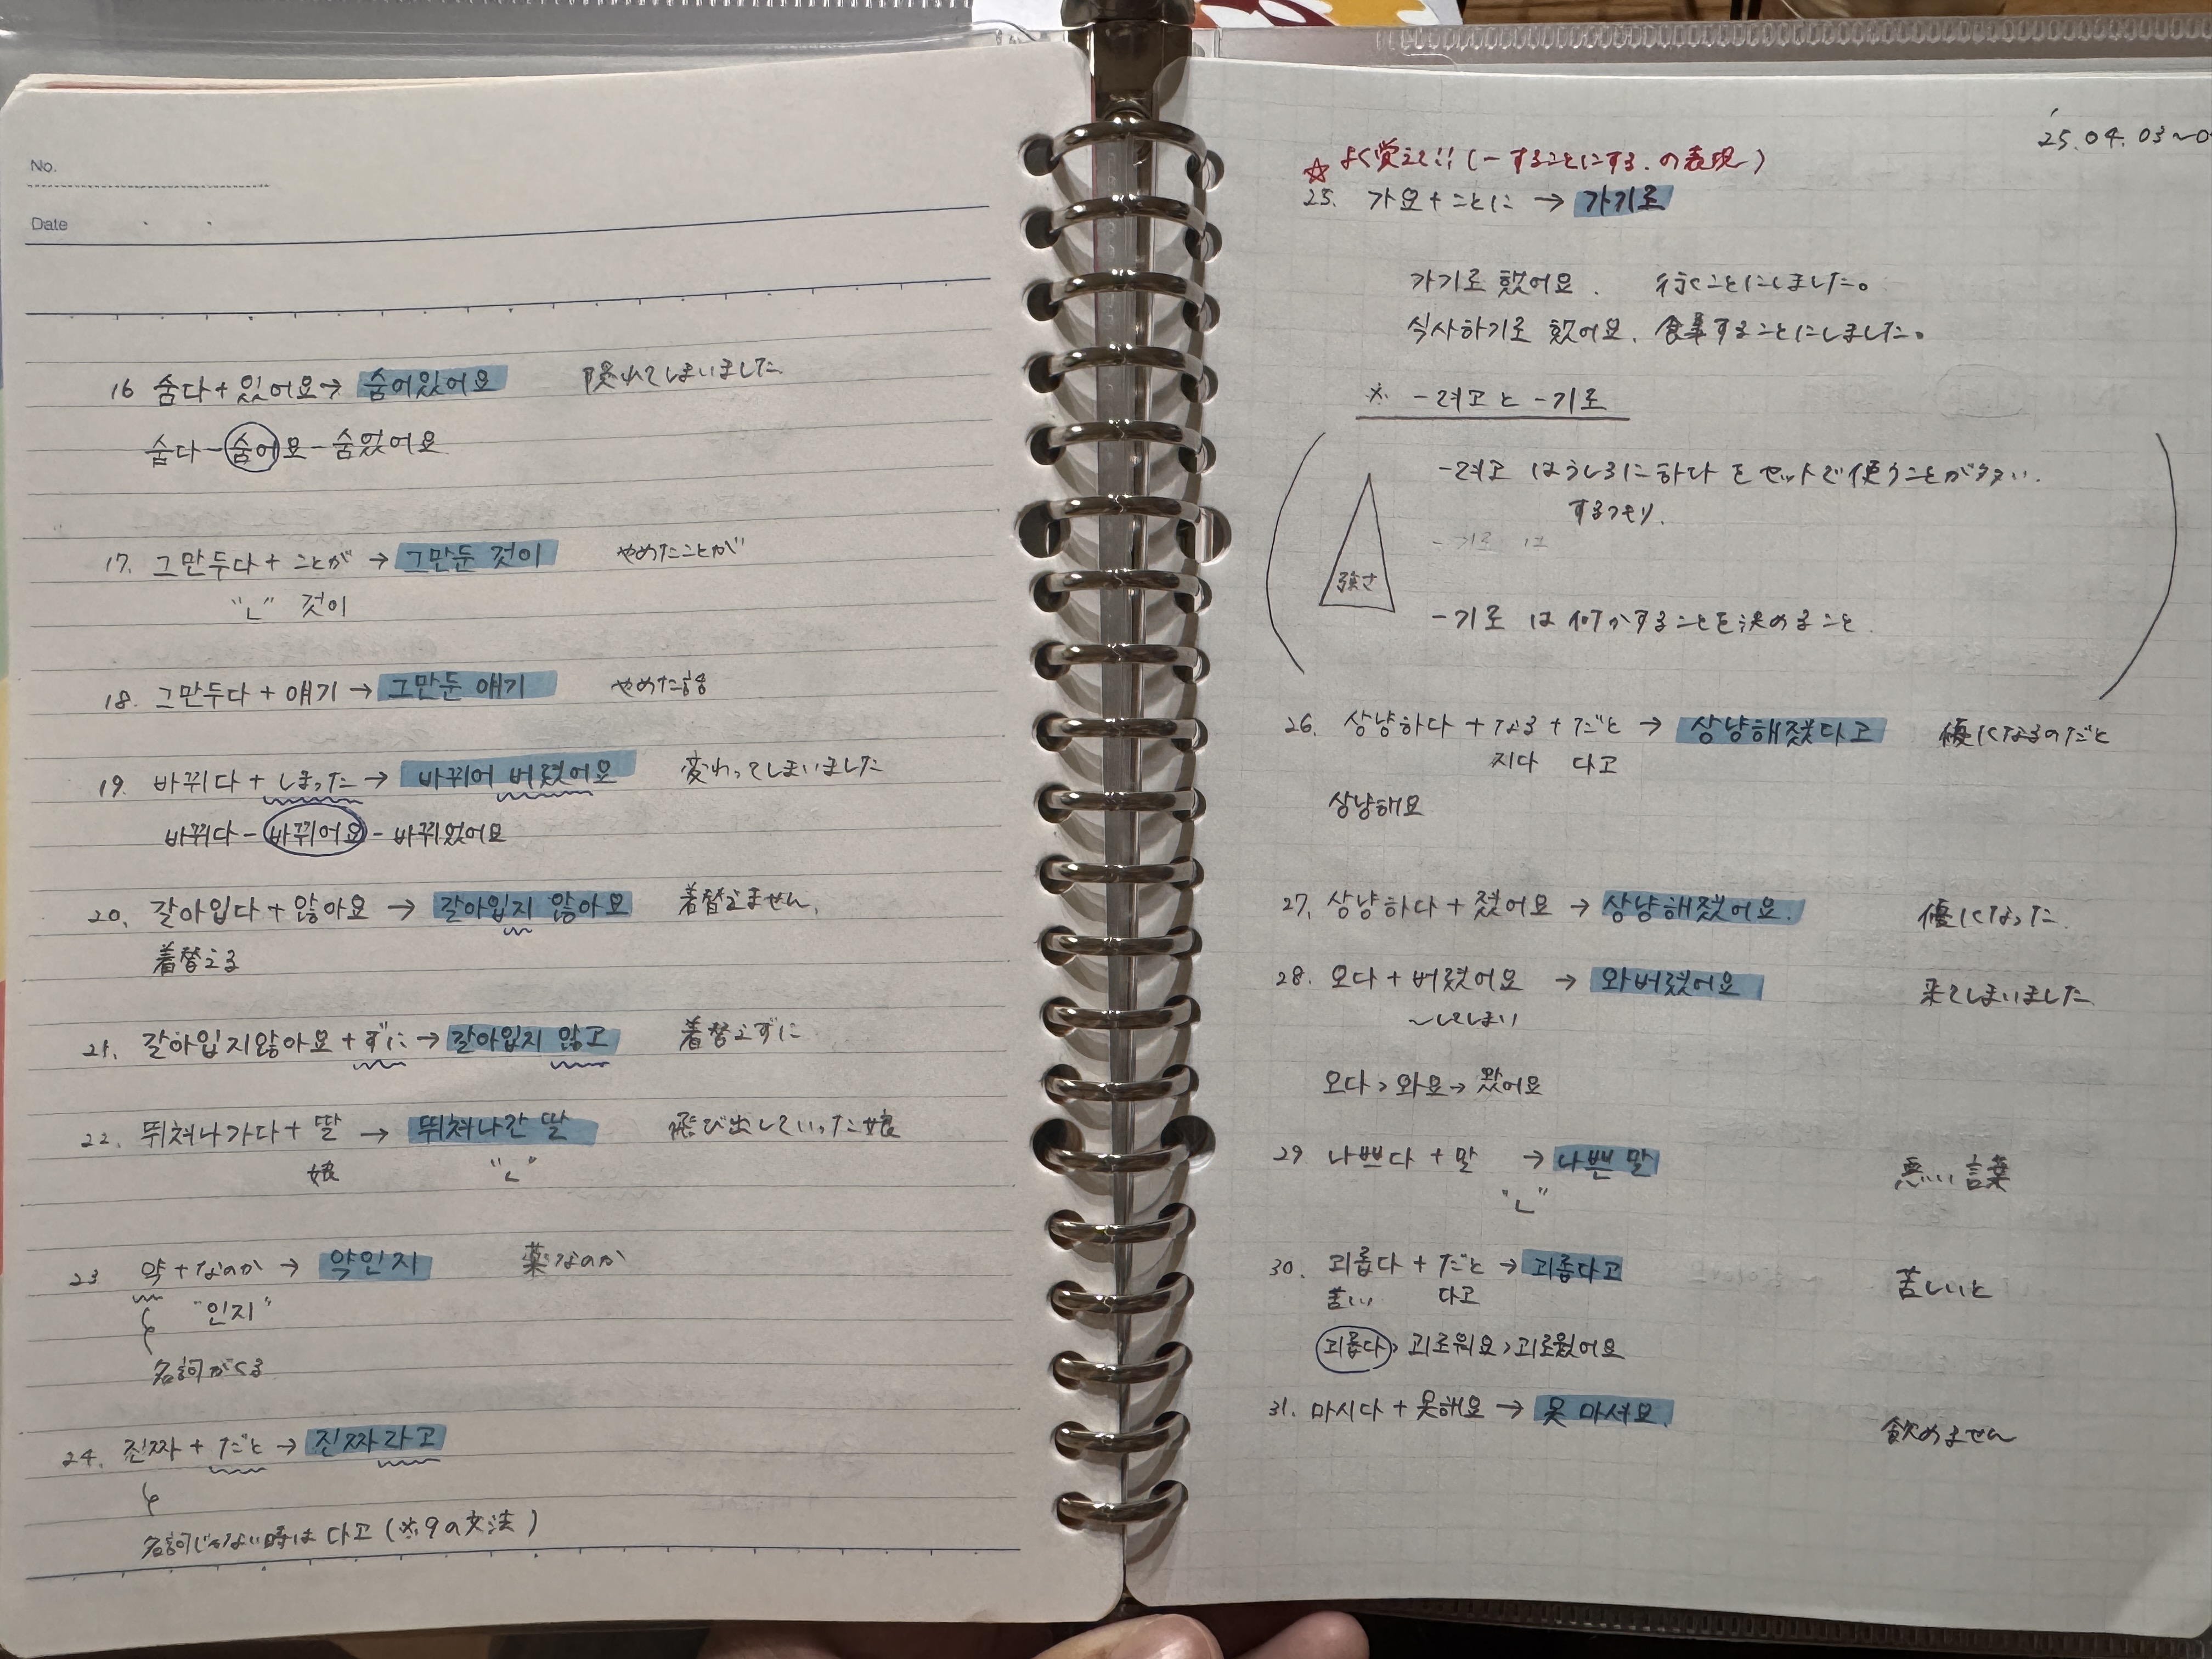 No.
Date
16 숨다 + 있어요 → 숨어있어요 隠れてしまいました
숨다 - 숨어요 - 숨었어요
17. 그만두다 + ことが → 그만둔 것이 やめたことが
"ㄴ" 것이
18. 그만두다 + 얘기 → 그만둔 얘기 やめた話
19. 바뀌다 + しまった → 바뀌어 버렸어요 変わってしまいました
바뀌다 - 바뀌어요 - 바뀌었어요
20. 갈아입다 + 않아요 → 갈아입지 않아요 着替えません.
着替える
21. 갈아입지않아요 + ずに → 갈아입지 않고 着替えずに
22. 뛰쳐나가다 + 딸 → 뛰쳐나간 딸 飛び出していった娘
娘 "ㄴ"
23 약 + なのか → 약인지 薬なのか
"인지"
名詞がくる
24. 진짜 + だと → 진짜라고
名詞じゃない時は 다고 (※9の文法)
'25.04.03~0
☆ よく覚えて!! (-することにする.の表現)
25. 가요 + ことに → 가기로
가기로 했어요. 行くことにしました。
식사하기로 했어요. 食事することにしました。
※ -려고 と -기로
-려고 はうしろに 하다 をセットで使うことが多い.
するつもり.
-기로 は
強さ
-기로 は何かすることを決めること.
26. 상냥하다 + なる + だと → 상냥해졌다고 優しくなるのだと
지다 다고
상냥해요
27. 상냥하다 + 졌어요 → 상냥해졌어요. 優しくなった.
28. 오다 + 버렸어요 → 와버렸어요 来てしまいました.
~してしまい
오다 > 와요 → 왔어요
29 나쁘다 + 말 → 나쁜 말 悪い言葉
"ㄴ"
30. 괴롭다 + だと → 괴롭다고 苦しいと
苦しい 다고
괴롭다 > 괴로워요 > 괴로웠어요
31. 마시다 + 못해요 → 못 마셔요. 飲めません